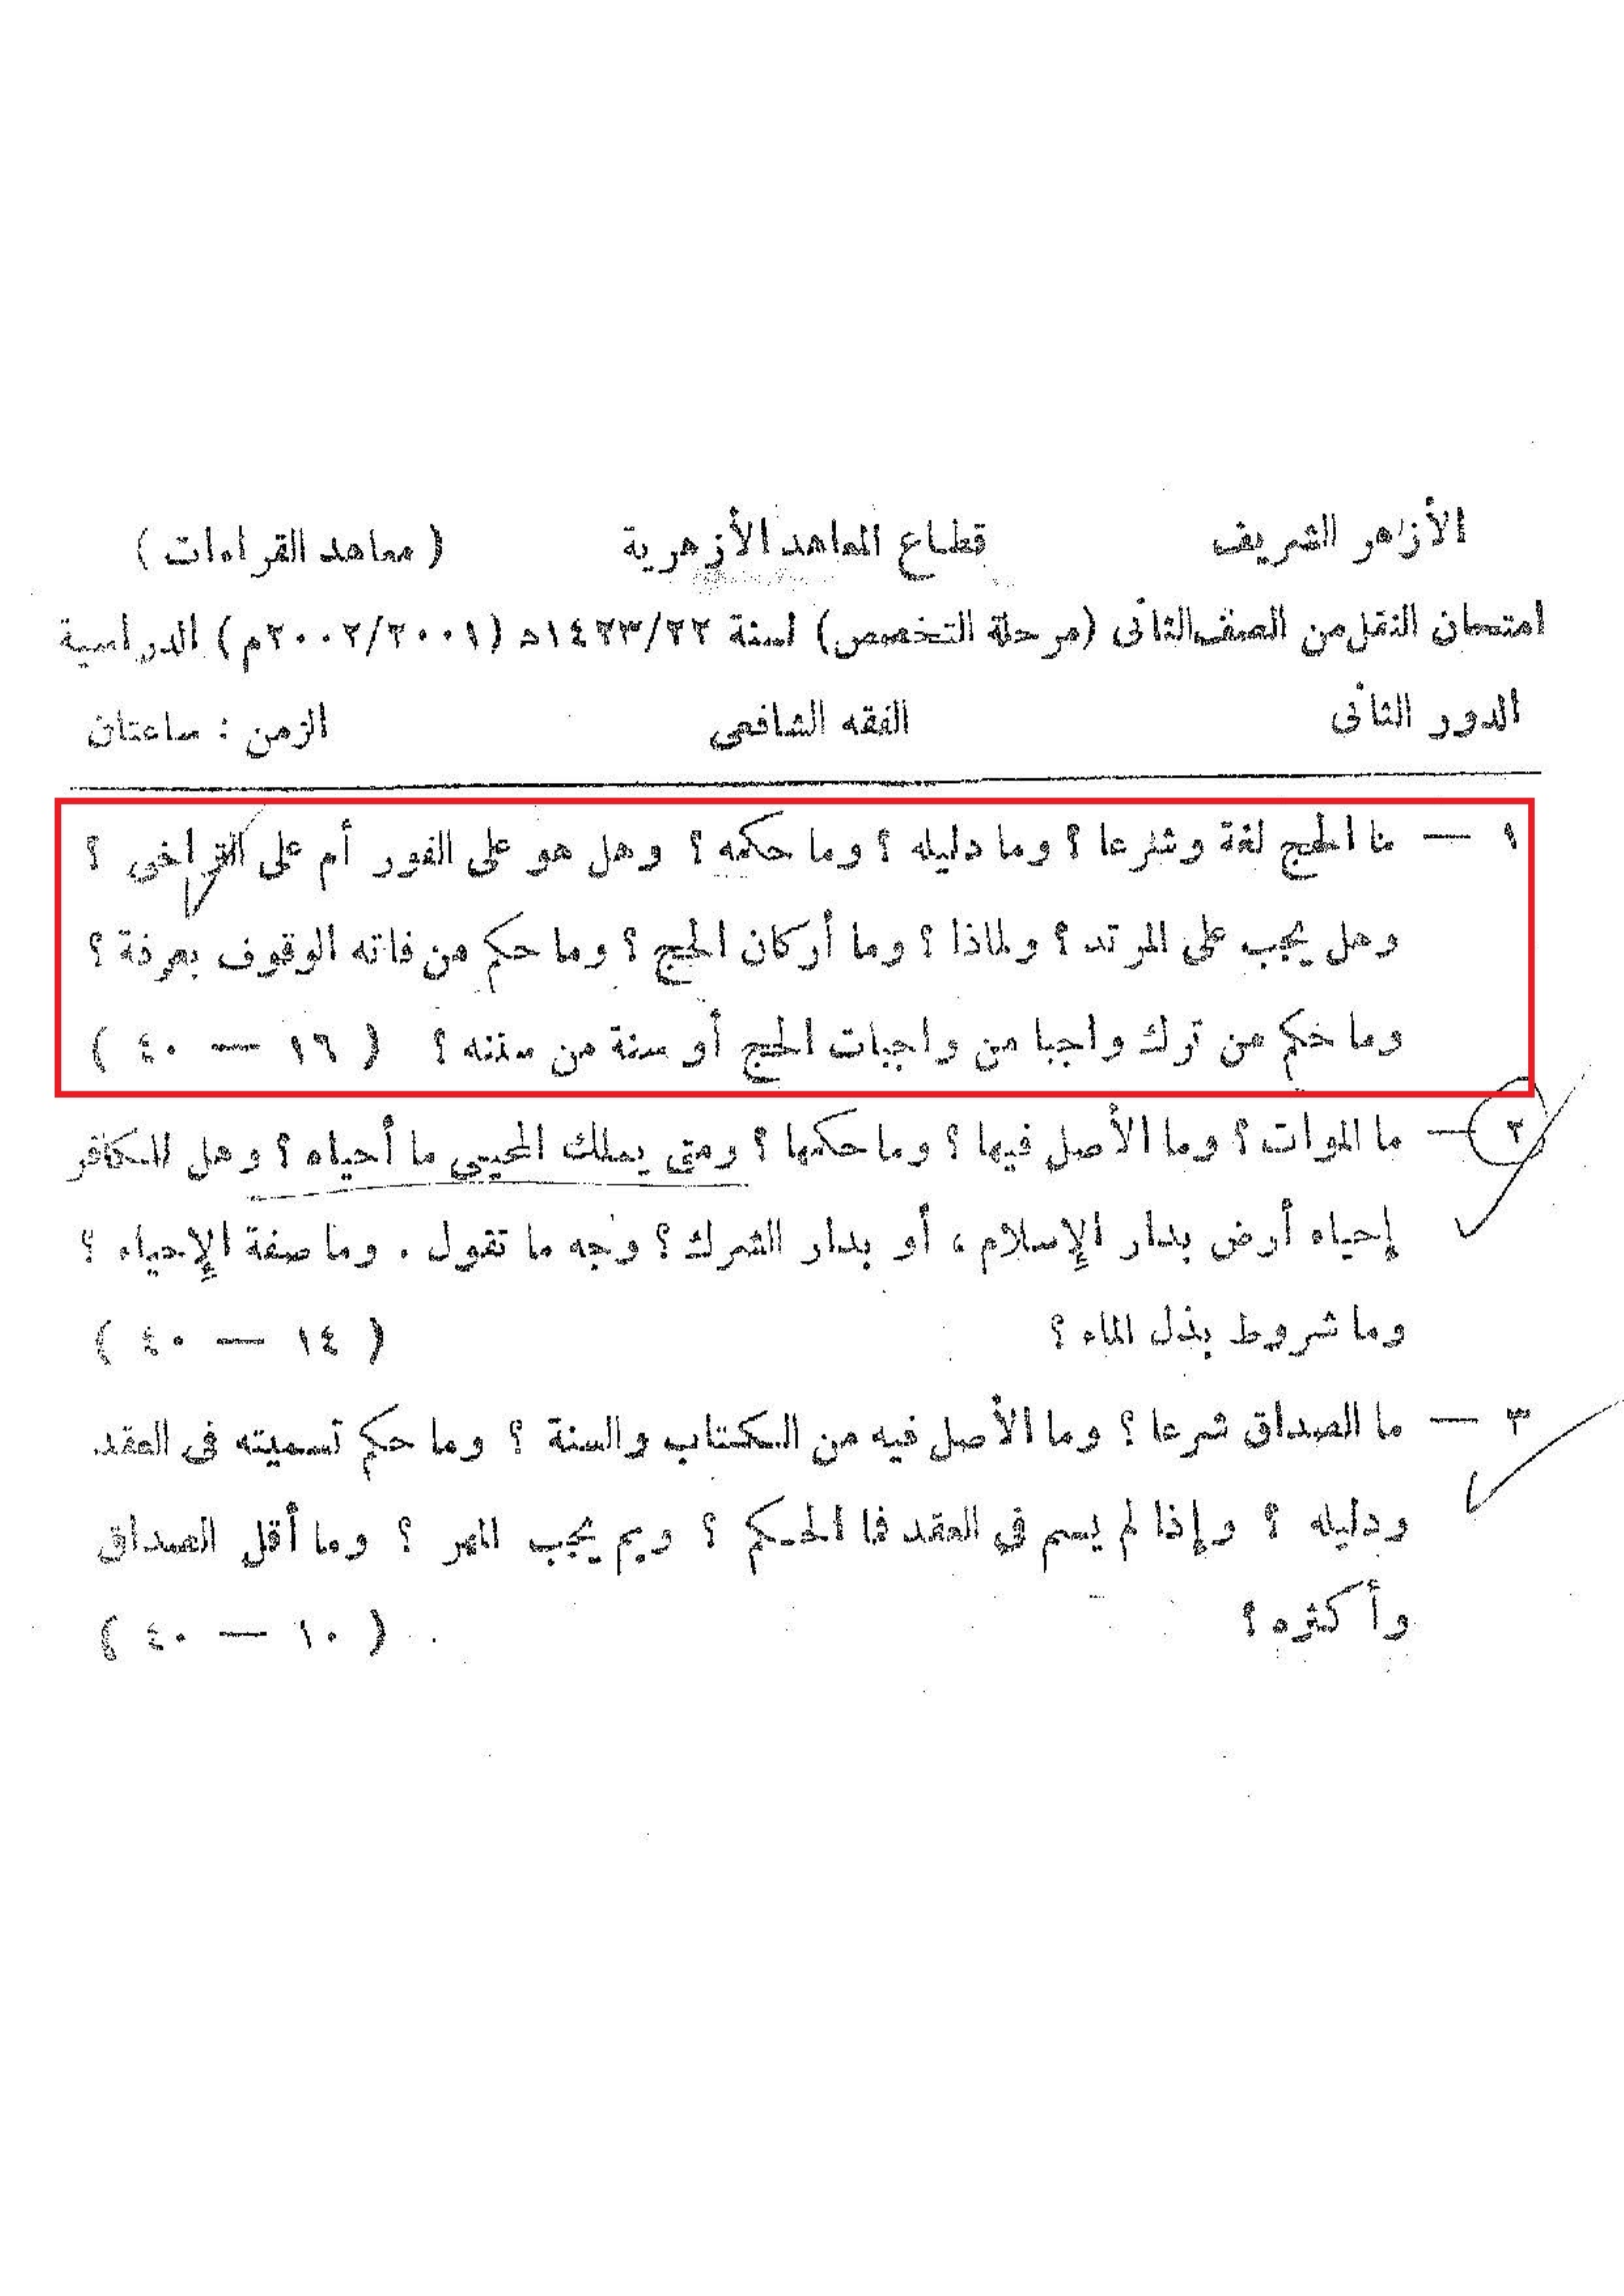 الأزهر الشريف قطاع المعاهد الأزهرية ( معاهد القراءات )
امتحان النقل من الصف الثانى (مرحلة التخصص) لسنة ١٤٢٣/٢٢هـ (٢٠٠٢/٢٠٠١م) الدراسية
الدور الثانى الفقه الشافعى الزمن : ساعتان
١ — ما الحج لغة وشرعا ؟ وما دليله ؟ وما حكمه ؟ وهل هو على الفور أم على التراخى ؟
وهل يجب على المرتد ؟ ولماذا ؟ وما أركان الحج ؟ وما حكم من فاته الوقوف بعرفة ؟
وما حكم من ترك واجبا من واجبات الحج أو سنة من سننه ؟ ( ١٦ — ٤٠ )
٢ — ما الموات ؟ وما الأصل فيها ؟ وما حكمها ؟ ومتى يملك المحيى ما أحياه ؟ وهل للكافر
إحياء أرض بدار الإسلام ، أو بدار الشرك ؟ وجه ما تقول . وما صفة الإحياء ؟
وما شروط بذل الماء ؟ ( ١٤ — ٤٠ )
٣ — ما الصداق شرعا ؟ وما الأصل فيه من الكتاب والسنة ؟ وما حكم تسميته فى العقد
ودليله ؟ وإذا لم يسم فى العقد فما الحكم ؟ وبم يجب المهر ؟ وما أقل الصداق
وأكثره ؟ ( ١٠ — ٤٠ )